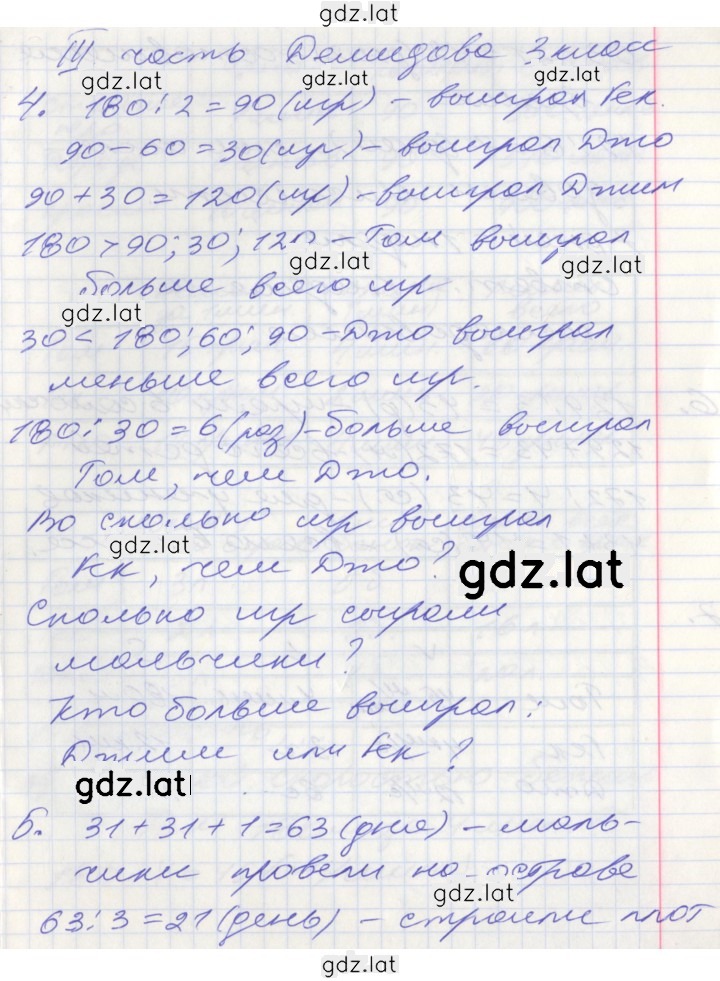 gdz.lat
III часть Демидова 3 класс
gdz.lat gdz.lat gdz.lat
4. 180 : 2 = 90 (игр) – выиграл Гек.
90 – 60 = 30 (игр) – выиграл Джо
90 + 30 = 120 (игр) – выиграл Джим
180 > 90; 30; 120 – Том выиграл
gdz.lat gdz.lat
больше всего игр
gdz.lat
30 < 180; 60; 90 – Джо выиграл
меньше всего игр.
180 : 30 = 6 (раз) – больше выиграл
Том, чем Джо.
Во сколько игр выиграл
gdz.lat
Гек, чем Джо?
gdz.lat
Сколько игр сыграли
мальчики?
Кто больше выиграл:
Джим или Гек?
gdz.lat
5. 31 + 31 + 1 = 63 (дня) – маль-
чики провели на острове
gdz.lat
63 : 3 = 21 (день) – строили плот
gdz.lat